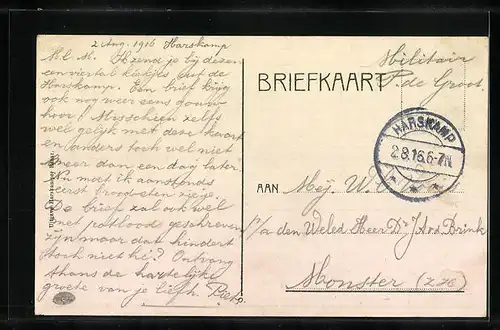 2 Aug. 1916 Harskamp
M. l. M. Ik zend je bij dezen
een viertal kiekjes van de
Harskamp. Een brief krijg
ook nog weer eens gauw
hoor! Misschien zelfs
wel gelijk met deze kaart
en anders toch wel niet
meer dan een dag later.
Nu moet ik aanstonds
eerst brood eten
De brief zal ook wel
met potlood geschreven
zijn maar dan hindert
toch niet hè? Ontvang
thans de hartelijke
groete van je liefh. Piet
Militair
P. de Groot
BRIEFKAART
HARSKAMP
2.8.16.6-7N
AAN Mej. W.
p/a den Weled Heer Dr J. v. d. Brink
Monster (Z.H.)